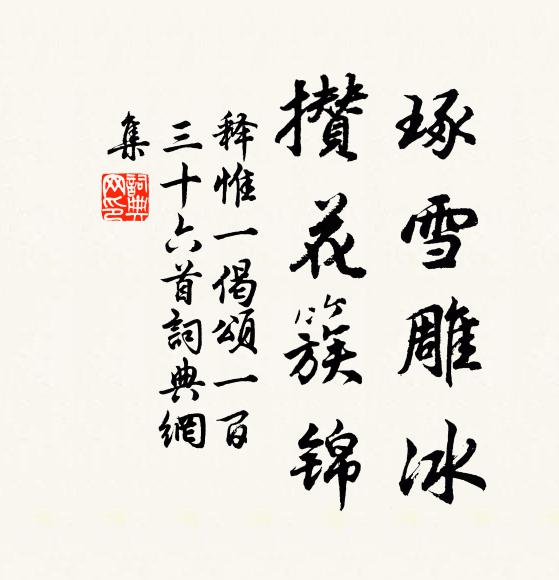 琢雪雕冰
攒花簇锦
释惟一偈颂一百
三十六首詞典網
集
詞典网印